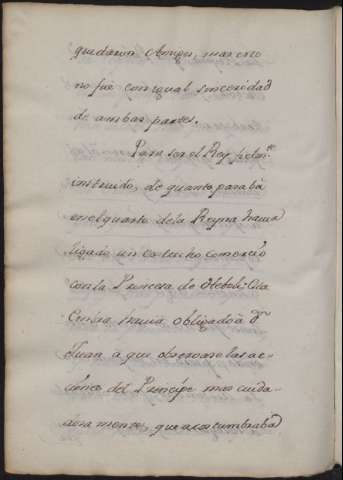 quedaron Amigos, mas esto
no fué con igual sinceridad
de ambas partes.
Para ser el Rey
instruido, de quanto pasaba
en el quarto de la Reyna havia
ligado un estrecho Comercio
con la Princesa de Heboli: Ella
havia obligado â Dn
Juan, a que observase las ac-
ciones del Principe mas cuida-
dosamente, que acostumbraba